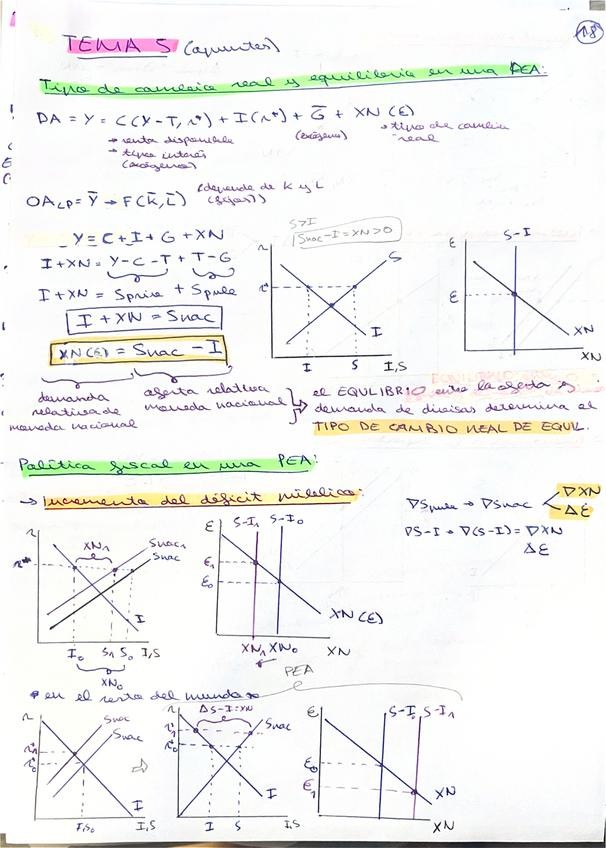 18
TEMA 5 (apuntes)
Tipo de cambio real y equilibrio en una PEA:
DA = Y = C(Y-T, r*) + I(r*) + G̅ + XN(ε)
→ renta disponible (exógeno) → tipo de cambio
→ tipos interés real
(exógenos)
OA LP = Y̅ → F(K̅, L̅) (depende de K y L
(fijos))
Y = C + I + G + XN
I + XN = Y - C - T + T - G
I + XN = Spriv + Spub
I + XN = Snac
XN(ε) = Snac - I
S>I
Snac - I = XN > 0
r
S
r*
I
I S I,S
ε
S-I
ε
XN
XN
demanda relativa de moneda nacional
oferta relativa moneda nacional
el EQUILIBRIO entre la oferta y
demanda de divisas determina el
TIPO DE CAMBIO REAL DE EQUIL.
Política fiscal en una PEA:
→ Incremento del déficit público:
∇Spub → ∇Snac ∇XN
Δε
∇S-I → ∇(S-I) = ∇XN
Δε
r
XN₁
Snac₁
Snac
r*
I
I₀ S₁ S₀ I,S
XN₀
ε
S-I₁ S-I₀
ε₁
ε₀
XN(ε)
XN₁ XN₀ XN
←
PEA
* en el resto del mundo *
r
Snac
Snac
r*₁
r*₀
I
I,S₀ I,S
⇒
r
ΔS-I = XN
Snac
r*₁
r*₀
I
I S I,S
ε
S-I₀ S-I₁
ε₀
ε₁
XN
XN